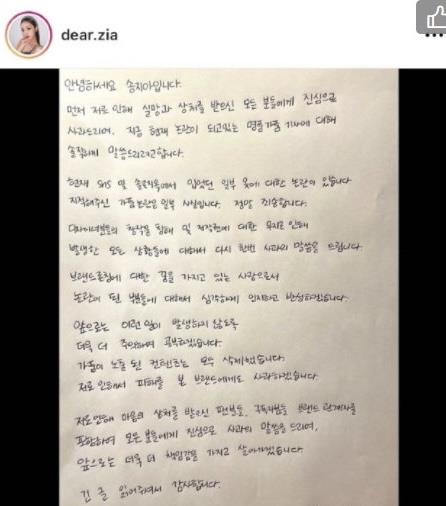 dear.zia
안녕하세요 송지아입니다.
먼저 저로 인해 실망과 상처를 받으신 모든 분들에게 진심으로
사과드리며, 지금 현재 논란이 되고있는 명품가품 기사에 대해
솔직하게 말씀드리려고합니다.
현재 SNS 및 솔로지옥에서 입었던 일부 옷에 대한 논란이 있습니다
지적해주신 가품논란은 일부 사실입니다. 정말 죄송합니다.
디자이너분들의 창작물 침해 및 저작권에 대한 무지로 인해
발생한 모든 상황들에 대해서 다시 한번 사과의 말씀을 드립니다.
브랜드론칭에 대한 꿈을 가지고 있는 사람으로서
논란이 된 부분들에 대해서 심각하게 인지하고 반성하겠습니다.
앞으로는 이런일이 발생하지 않도록
더욱 더 주의하며 공부하겠습니다.
가품이 노출 된 컨텐츠는 모두 삭제했습니다.
저로 인해서 피해를 본 브랜드에게도 사과하겠습니다.
저로인해 마음의 상처를 받으신 팬분들, 구독자분들 브랜드 관계자를
포함하여 모든 분들에게 진심으로 사과의 말씀을 드리며,
앞으로는 더욱 더 책임감을 가지고 살아가겠습니다
긴 글 읽어주셔서 감사합니다.